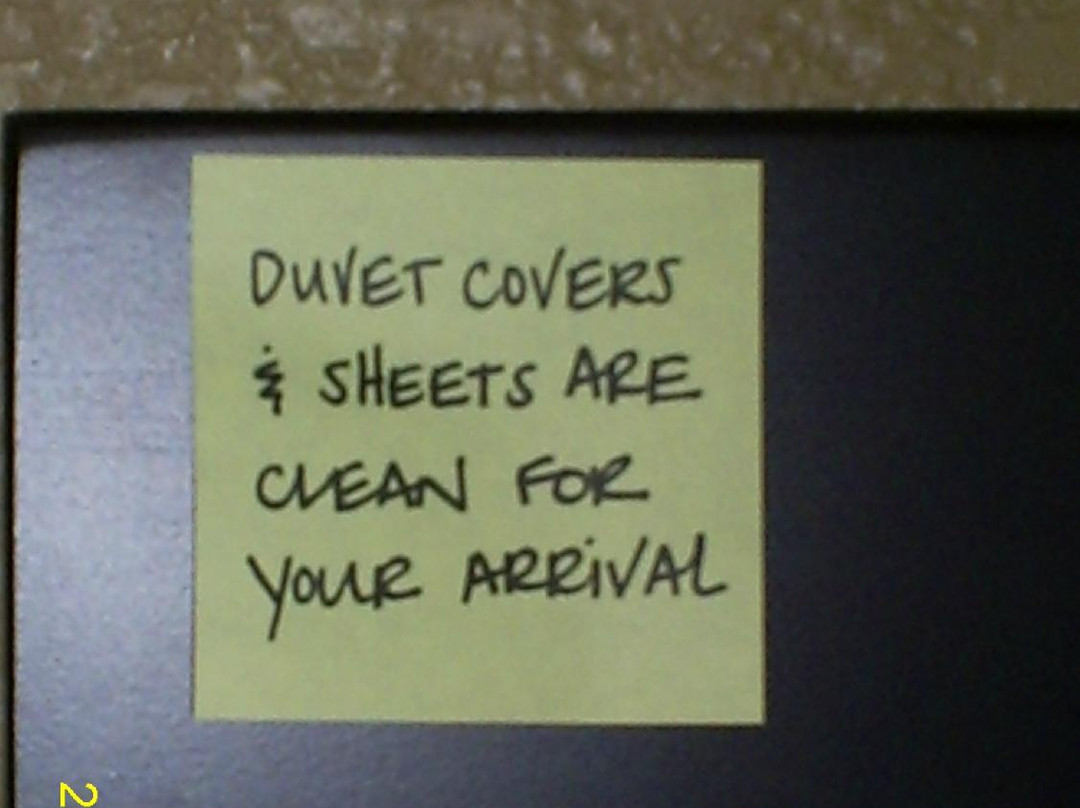 DUVET COVERS
& SHEETS ARE
CLEAN FOR
YOUR ARRiVAL
2